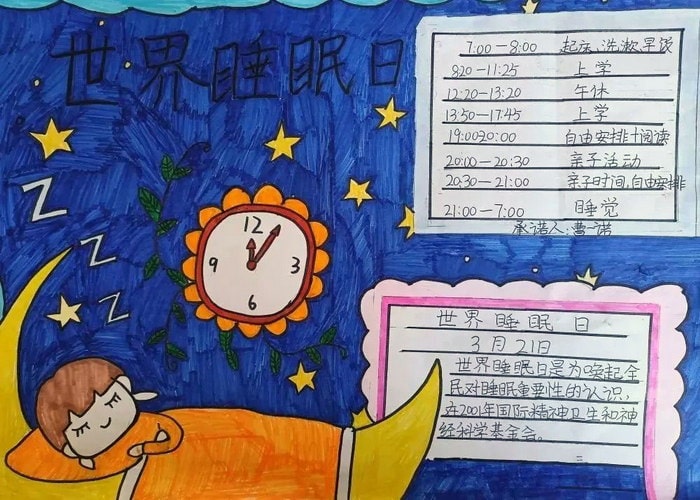 世界睡眠日
7:00—8:00 起床、洗漱、早饭
8:20—11:25 上学
12:20—13:20 午休
13:50—17:45 上学
19:0020:00 自由安排+阅读
20:00—20:30 亲子活动
20:30—21:00 亲子时间,自由安排
21:00—7:00 睡觉
承诺人:曹一诺
Z
Z
Z
Z
12
9 3
6
世界睡眠日
3月21日
世界睡眠日是为唤起全
民对睡眠重要性的认识,
在2001年国际精神卫生和神
经科学基金会。